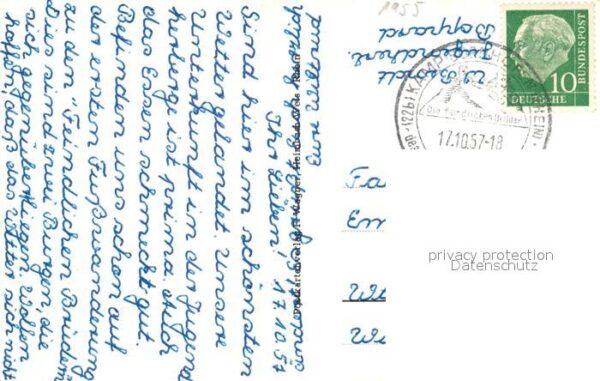 1955
W. Bündt
Jugendherb.
Boppard.
DEUTSCHE
BUNDESPOST
10
(22b) KAMP
(RHEIN)
Die feindlichen Brüder
17.10.57-18
Ihr Lieben! 17.10.57
Sind hier im schönsten
Wetter gelandet. Unsere
Unterkunft in der Jugend
herberge ist prima. Auch
das Essen schmeckt gut.
Befinden uns schon auf
der ersten Fußwanderung
zu den "Feindlichen Brüdern".
Dies sind zwei Burgen, die
sich gegenüberliegen. Wollen
hoffen, daß das Wetter sich nicht
ändert.
Euer
Postkartenverlag H. Wagner,
Rhein
Fa
Em
privacy protection
Datenschutz